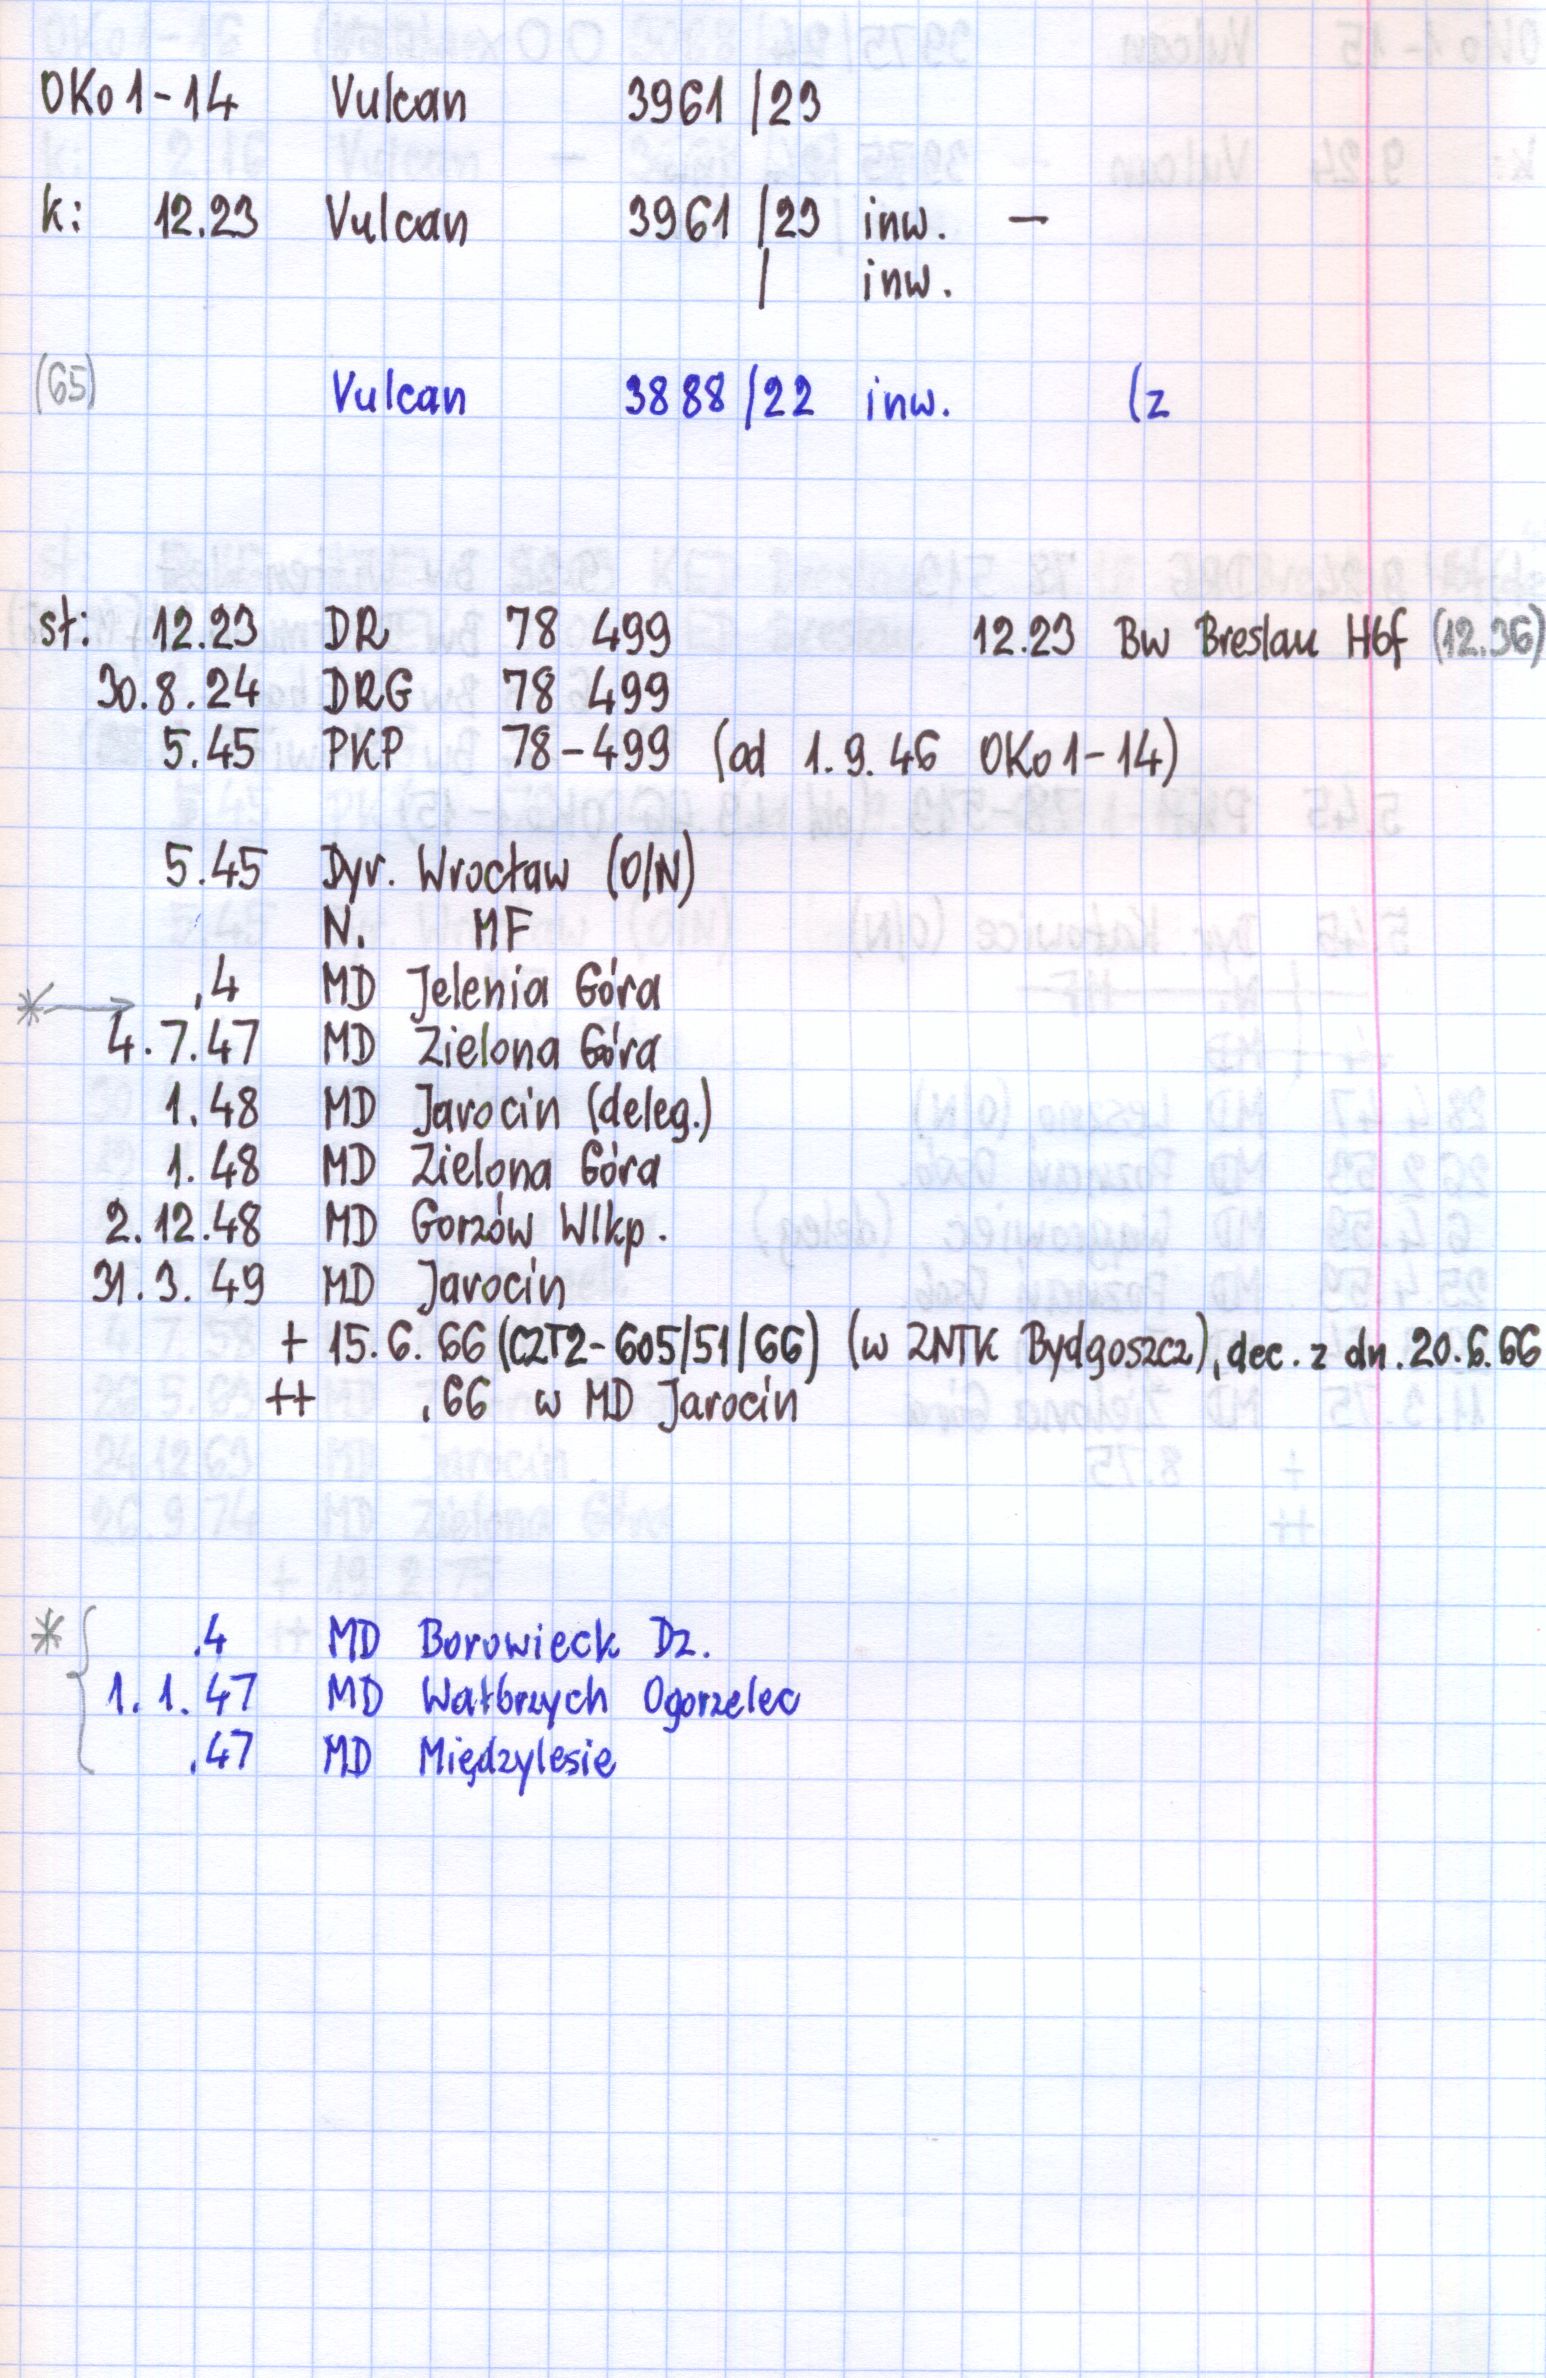 OKo1-14 Vulcan 3961/23
k: 12.23 Vulcan 3961/23 inw. —
/ inw.
(65) Vulcan 3888/22 inw. (z
st: 12.23 DR 78 499 12.23 Bw Breslau Hbf (12.36)
30.8.24 DRG 78 499
5.45 PKP 78-499 (od 1.9.46 OKo1-14)
5.45 Dyr. Wrocław (O/N)
N. MF
.4 MD Jelenia Góra
* →
4.7.47 MD Zielona Góra
1.48 MD Jarocin (deleg.)
1.48 MD Zielona Góra
2.12.48 MD Gorzów Wlkp.
31.3.49 MD Jarocin
+ 15.6.66 (CZT2-605/51/66) (w ZNTK Bydgoszcz), dec. z dn. 20.6.66
++ .66 w MD Jarocin
* { .4 MD Borowieck Dz.
1.1.47 MD Wałbrzych Ogorzelec
.47 MD Międzylesie